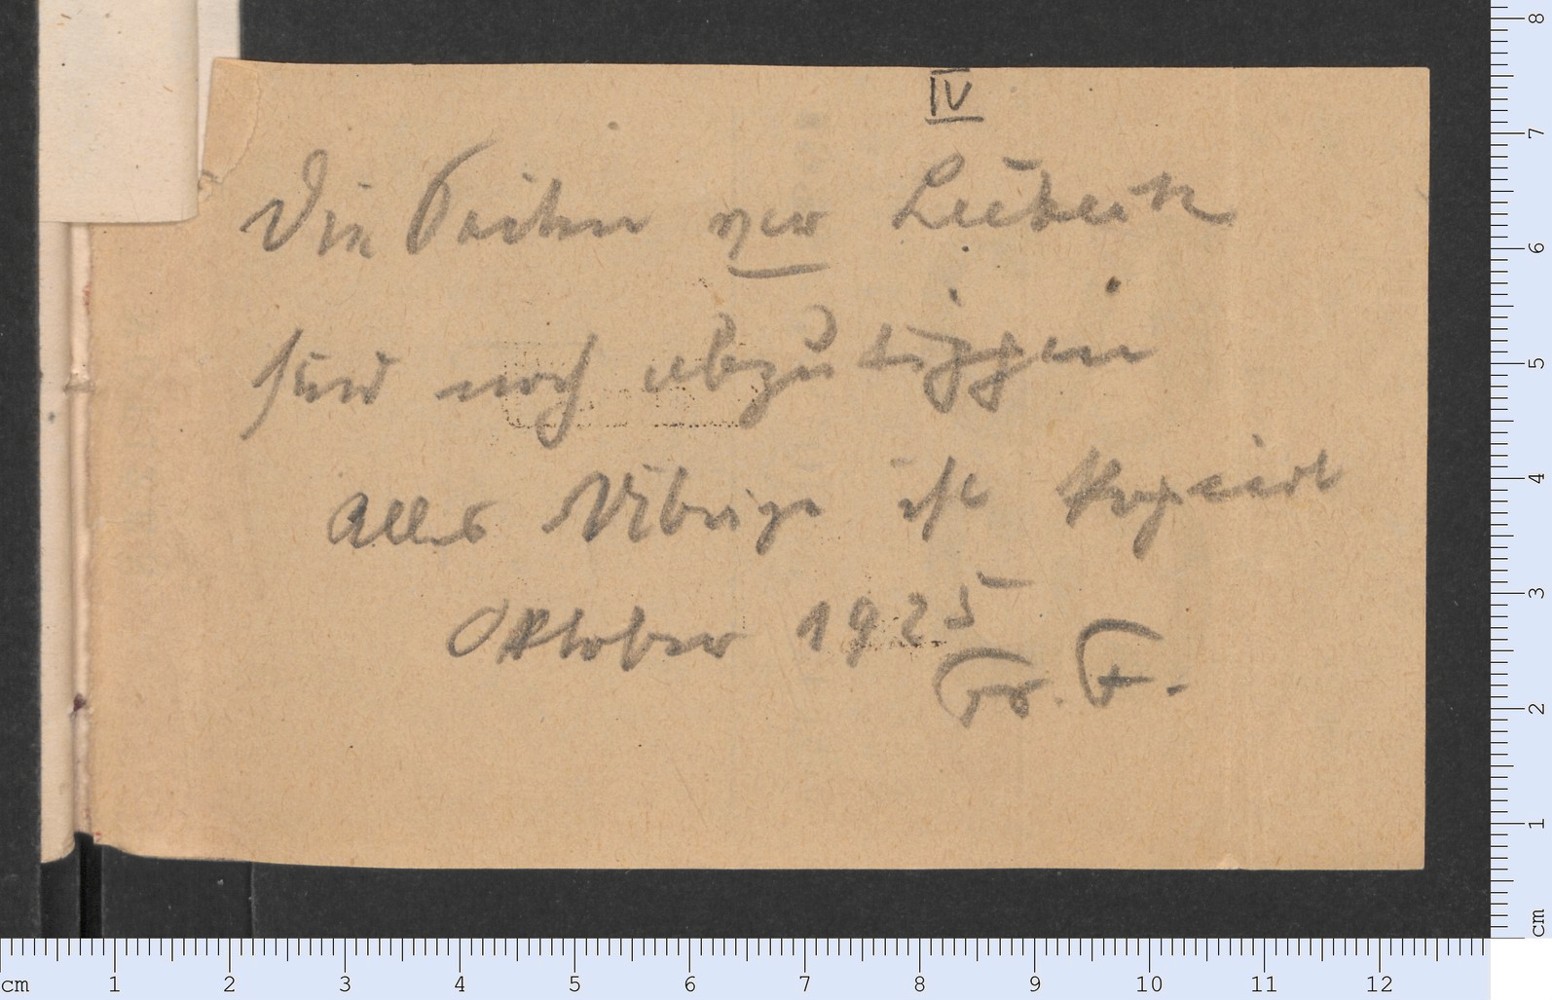 IV
Die Seiten vor Lübeck
sind noch abzutippen
Alles Übrige ist kopiert
Oktober 1925
F.
cm 1 2 3 4 5 6 7 8 9 10 11 12
8
7
6
5
4
3
2
1
cm